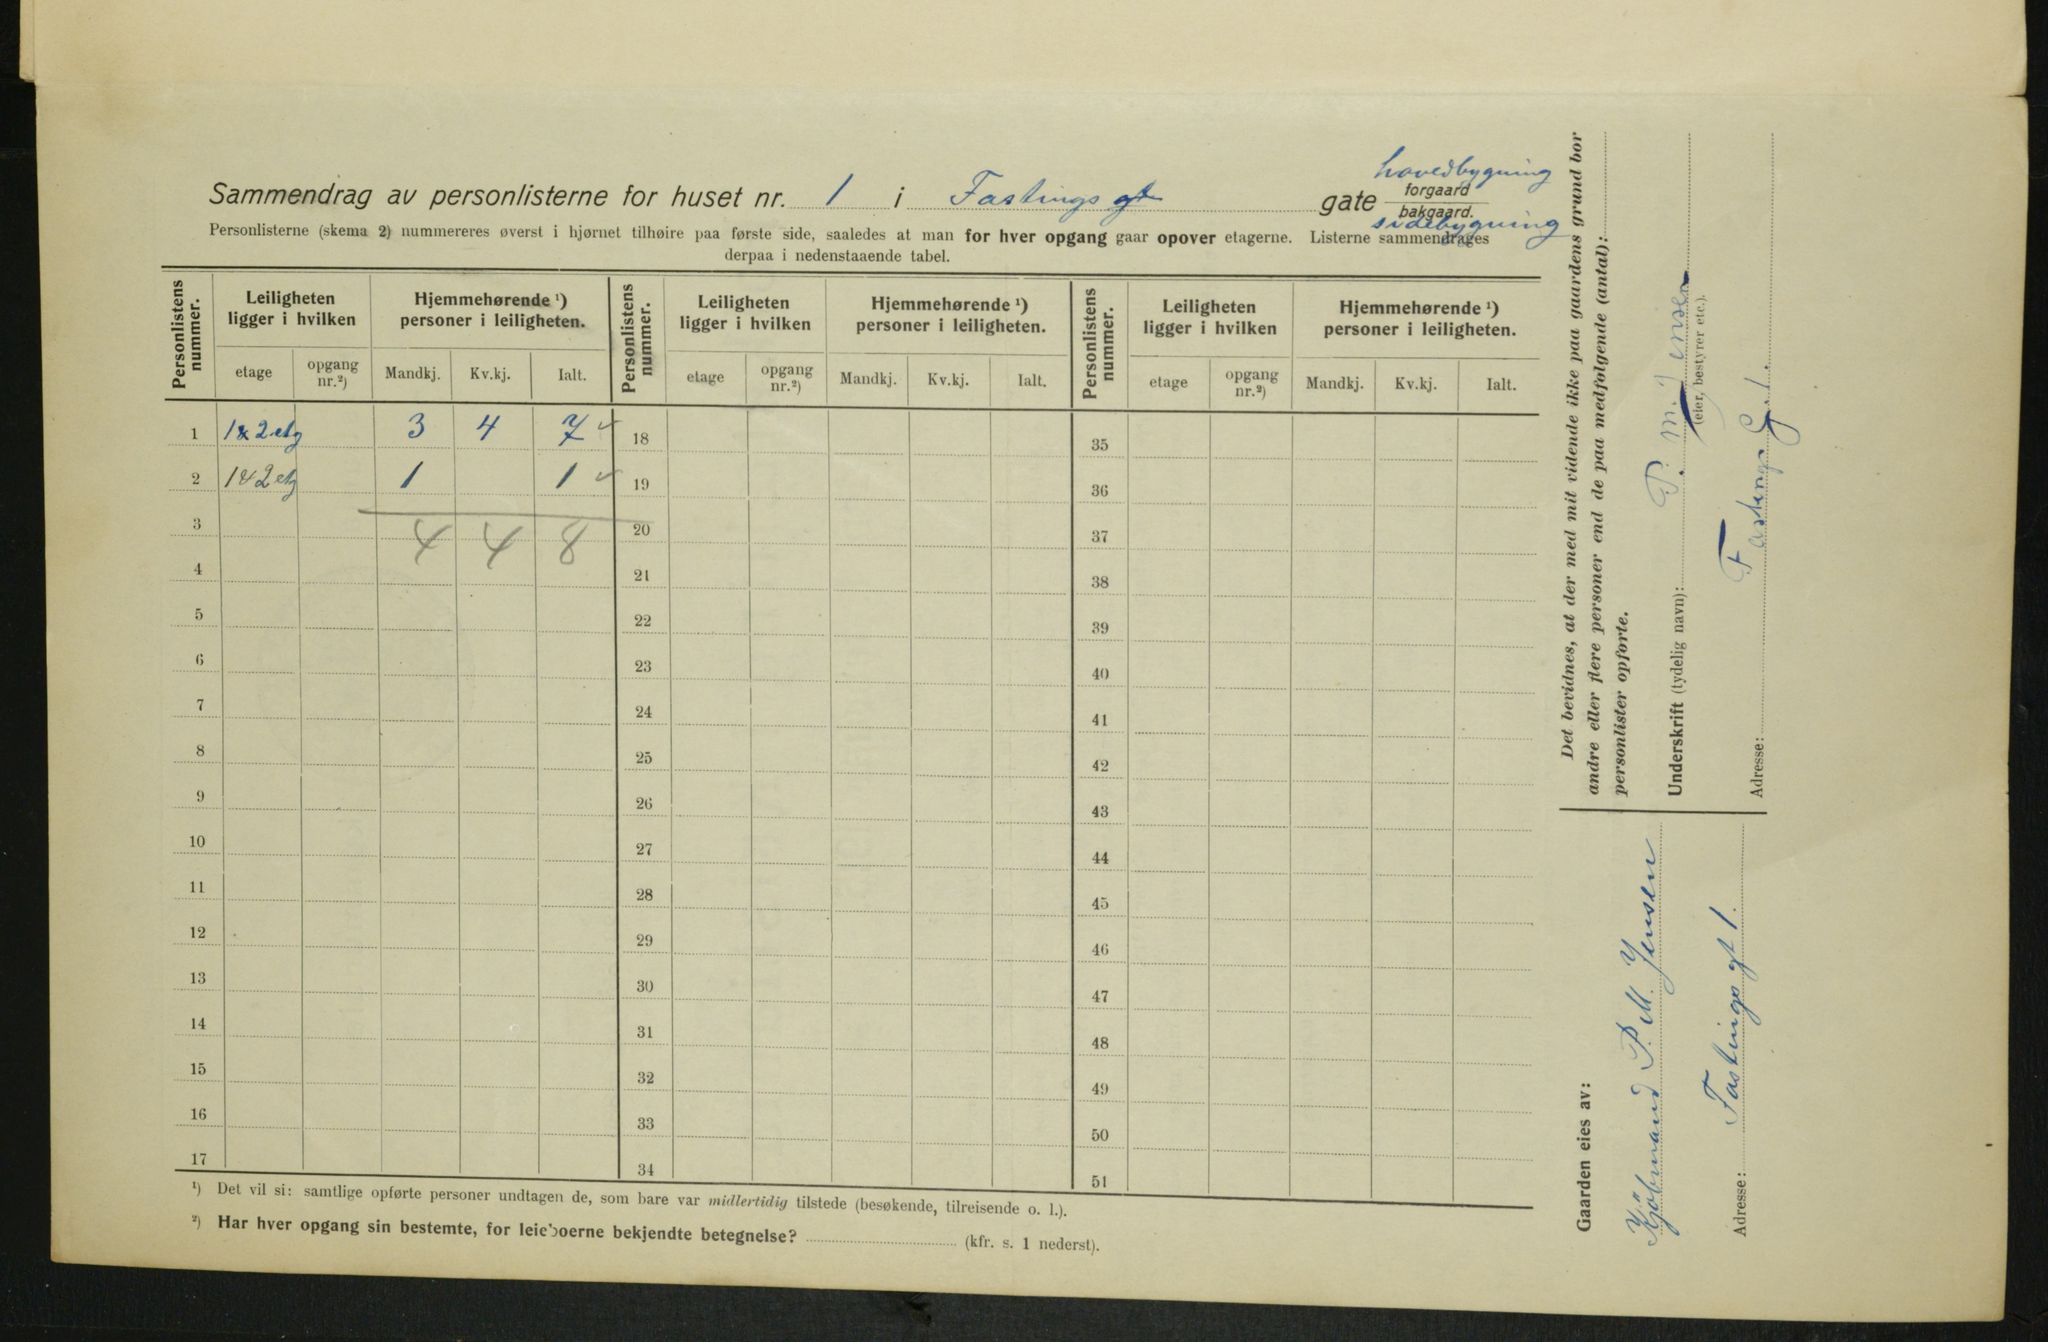 Sammendrag av personlisterne for huset nr. 1 i Fastings gt gate forgaard bakgaard.
hovedbygning
sidebygning
Personlisterne (skema 2) nummereres øverst i hjørnet tilhøire paa første side, saaledes at man for hver opgang gaar opover etagerne. Listerne sammendrages
derpaa i nedenstaaende tabel.
Personlistens nummer. Leiligheten ligger i hvilken Hjemmehørende ¹) personer i leiligheten. Personlistens nummer. Leiligheten ligger i hvilken Hjemmehørende ¹) personer i leiligheten. Personlistens nummer. Leiligheten ligger i hvilken Hjemmehørende ¹) personer i leiligheten.
etage opgang nr.²) Mandkj. Kv.kj. Ialt. etage opgang nr.²) Mandkj. Kv.kj. Ialt. etage opgang nr.²) Mandkj. Kv.kj. Ialt.
1 1&2 etg 3 4 7 18 35
2 1&2 etg 1 1 19 36
3 4 4 8 20 37
4 21 38
5 22 39
6 23 40
7 24 41
8 25 42
9 26 43
10 27 44
11 28 45
12 29 46
13 30 47
14 31 48
15 32 49
16 33 50
17 34 51
¹) Det vil si: samtlige opførte personer undtagen de, som bare var midlertidig tilstede (besøkende, tilreisende o. l.).
²) Har hver opgang sin bestemte, for leieboerne bekjendte betegnelse? (kfr. s. 1 nederst).
Det bevidnes, at der med mit vidende ikke paa gaardens grund bor
andre eller flere personer end de paa medfølgende (antal):
personlister opførte.
Underskrift (tydelig navn): P. M. Jensen
(eier, bestyrer etc.).
Adresse: Fastings G. 1.
Gaarden eies av:
Kjöbmand P. M. Jensen
Adresse: Fastings gt 1.